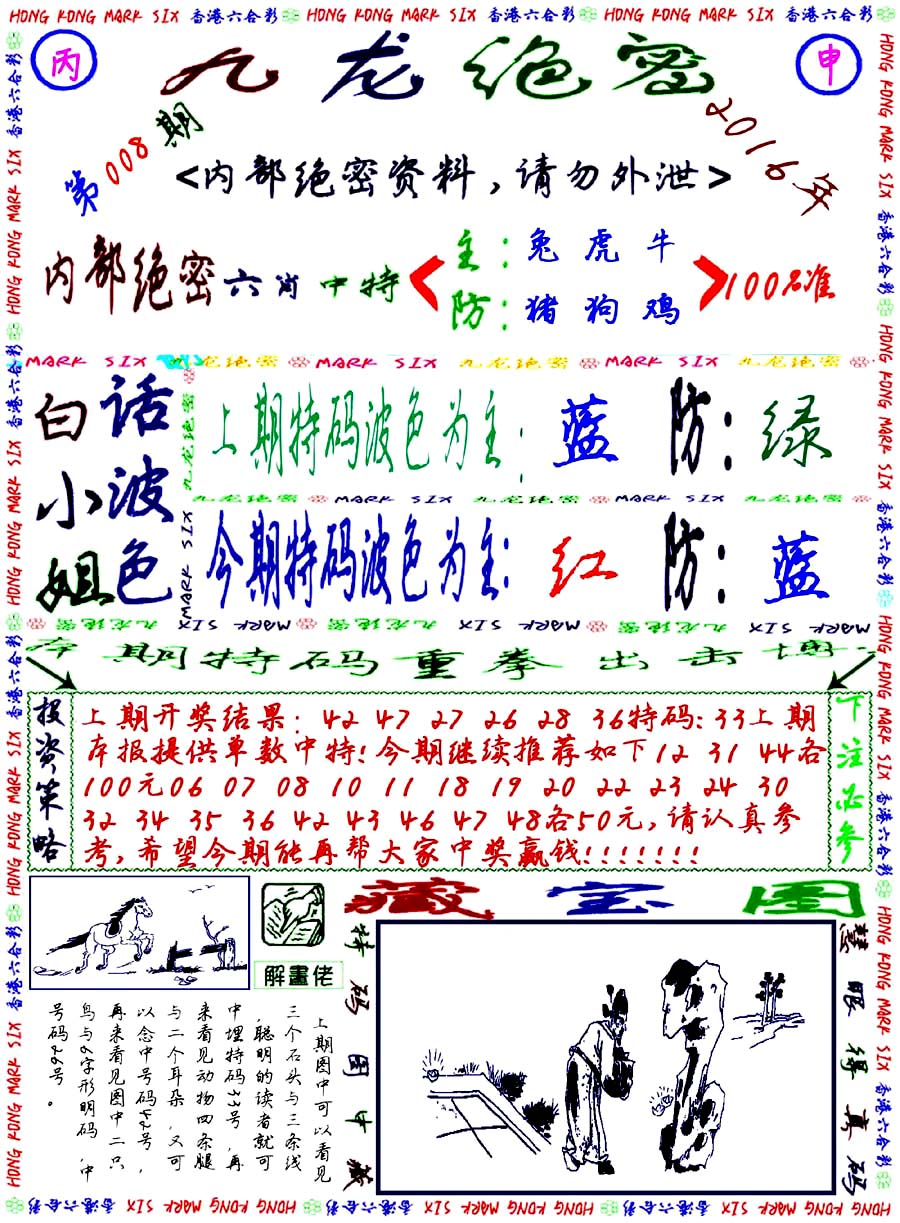 HONG KONG MARK SIX 香港六合彩 HONG KONG MARK SIX 香港六合彩 HONG KONG MARK SIX 香港六合彩
丙
九龙绝密
申
第008期
2016年
<内部绝密资料,请勿外泄>
内部绝密六肖中特
主:兔虎牛
防:猪狗鸡
100%准
MARK SIX 九龙绝密 MARK SIX 九龙绝密 MARK SIX 九龙绝密
白小姐
话波色
上期特码波色为主:蓝 防:绿
九龙绝密 MARK SIX 九龙绝密 MARK SIX 九龙绝密
今期特码波色为主:红 防:蓝
九龙绝密 MARK SIX 九龙绝密 MARK SIX 九龙绝密 MARK SIX
本期特码重拳出击博
投资策略
上期开奖结果:42 47 27 26 28 36特码:33上期
本报提供单数中特!今期继续推荐如下12 31 44各
100元06 07 08 10 11 18 19 20 22 23 24 30
32 34 35 36 42 43 46 47 48各50元,请认真参
考,希望今期能再帮大家中奖赢钱!!!!!!!
下注必参
解畫佬
藏宝图
特码图中藏
慧眼得真码
上期图中可以看见
三个石头与三条线
,聪明的读者就可
中埋特码33号,再
来看见动物四条腿
与二个耳朵,又可
以念中号码42号,
再来看见图中二只
鸟与6字形明码,中
号码26号。
HONG KONG MARK SIX 香港六合彩 HONG KONG MARK SIX 香港六合彩 HONG KONG MARK SIX 香港六合彩